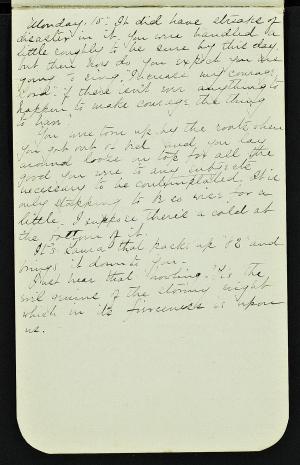 Monday, 15: It did have streaks of
disaster in it. You were handled a
little roughly to be sure by this day,
but then how do you expect you are
going to sing, "Increase my courage,
Lord" if there isn't ever anything to
happen to make courage the thing
to have?
You were torn up by the roots when
you got out of bed and you lay
around loose on top for all the
good you were to any subjects
necessary to be contemplated. It is
only stopping to B so wise for a
little. I suppose there's a cold at
the bottom of it.
It's that packs up '63 and
brings it down to you.
Must hear that "working." 'Tis the
evil genius of the stormy night
which in its fierceness is upon
us.